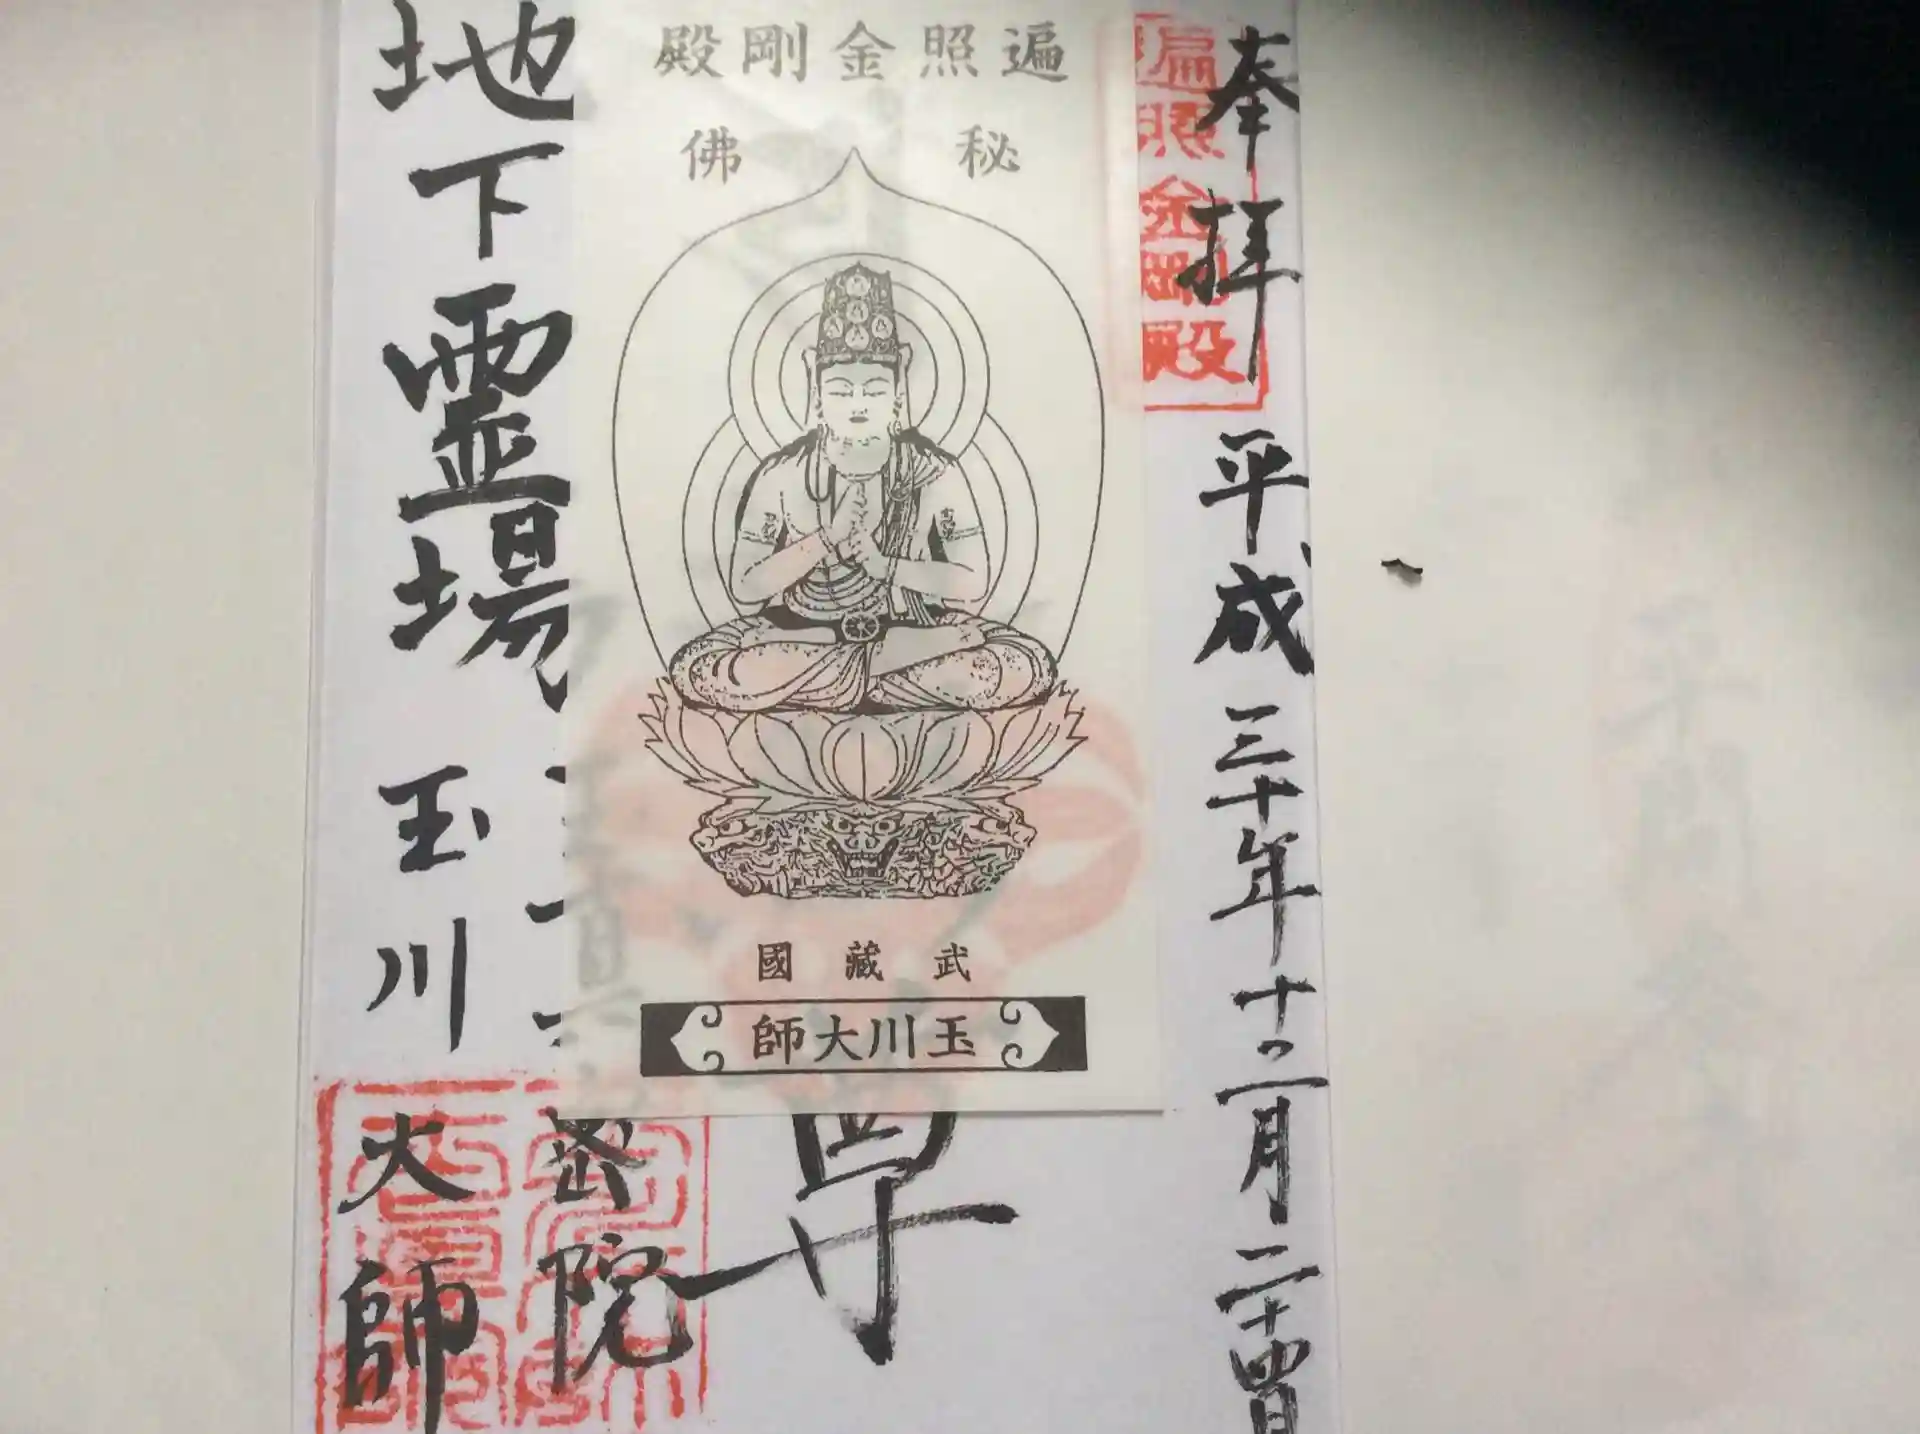 奉拝
平成三十年十二月二十四日
遍照金剛殿
遍照金剛殿
秘佛
武藏國
玉川大師
尊
密院
地下霊場
玉川
大師